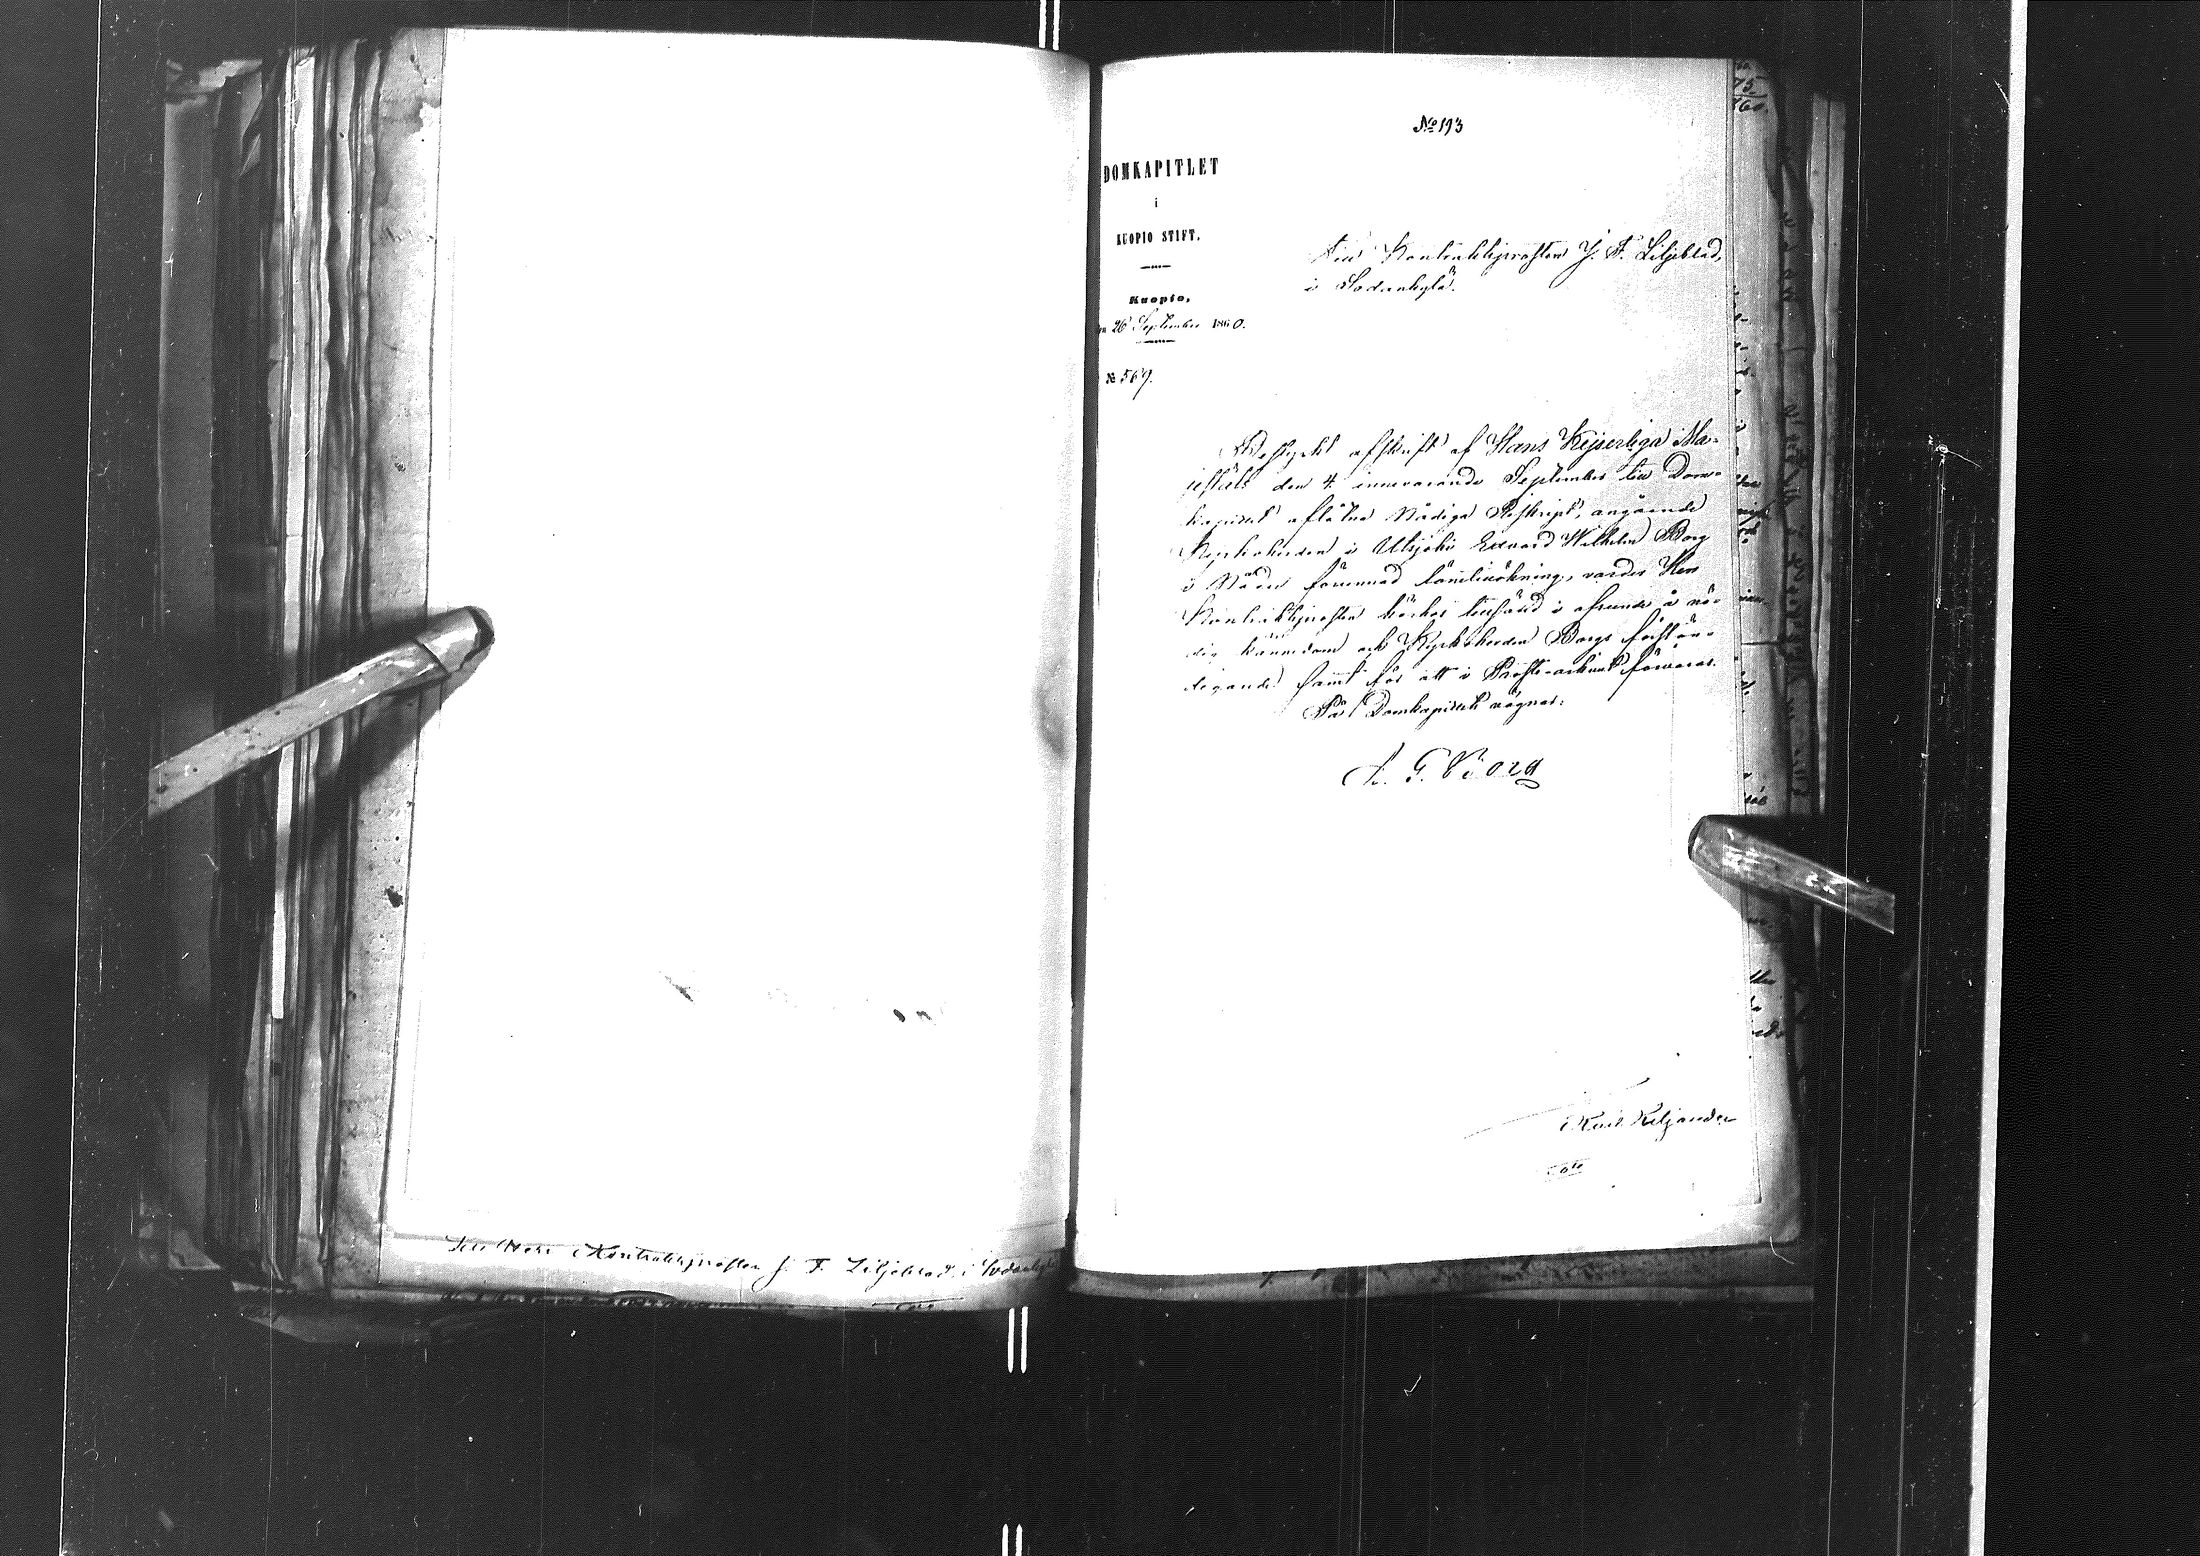 Till Herr Kontraktsprosten J. F. Liljeblad i Sodankylä
№ 193
DOMKAPITLET
i
KUOPIO STIFT.
Kuopio,
26 September 1860.
№ 569.
Till Kontraktsprosten J. F. Liljeblad,
i Sodankylä.
Bestyrkt afskrift af Hans Kejserliga Ma-
jestäts den 4 innevarande September till Dom-
kapitlet aflåtna Nådiga Reskript, angående
Kyrkoherden i Utsjoki Edvard Wilhelm Borg
i Nåder förunnad lönetillökning, varder Herr
Kontraktsprosten härhos tillsänd i afseende å nö-
dig kännedom och Kyrkoherden Borgs förstän-
digande samt för att i Prostearkivet förvaras.
På Domkapitlets vägnar:
A. G. Borg
Karl Kiljander